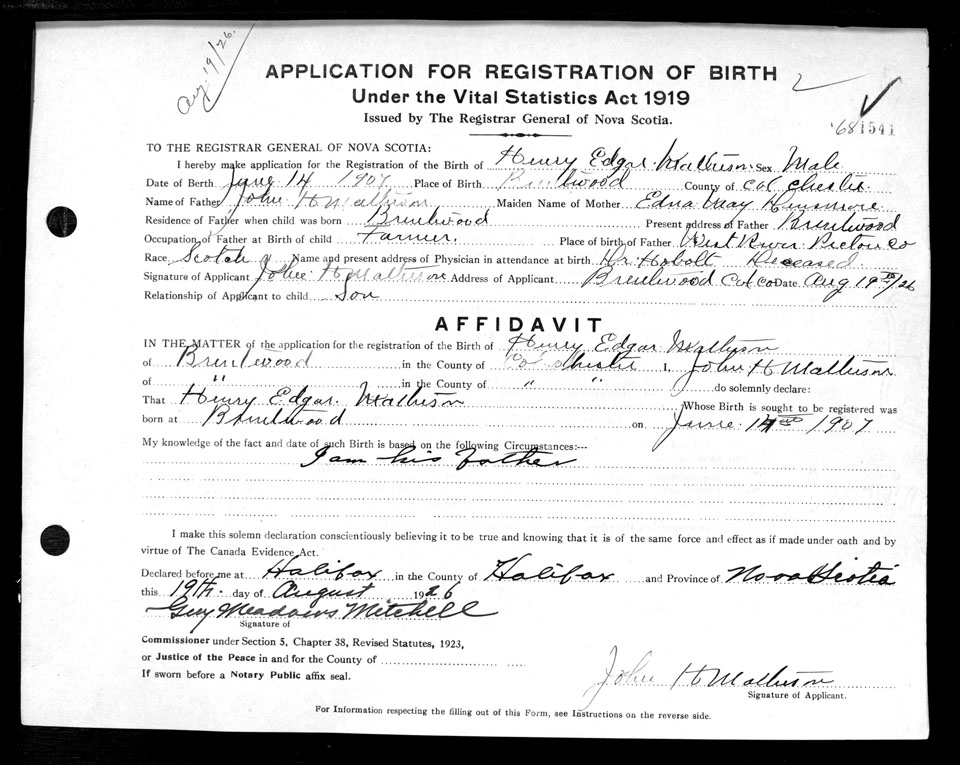 Aug. 19/26.
APPLICATION FOR REGISTRATION OF BIRTH
2
Under the Vital Statistics Act 1919
Issued by The Registrar General of Nova Scotia.
'681541
TO THE REGISTRAR GENERAL OF NOVA SCOTIA:
I hereby make application for the Registration of the Birth of Henry Edgar Matheson Sex Male
Date of Berth June 14 1907 Place of Birth Brentwood County of Col chester
Name of Father John H Matheson Maiden Name of Mother Edna May Densmore
Residence of Father when child was born Brentwood Present address of Father Brentwood
Occupation of Father at Birth of child Farmer. Place of birth of Father West River Pictou Co
Race, Scotch Name and present address of Physician in attendance at birth Dr. Deceased.
Signature of Applicant John H Matheson Address of Applicant Brentwood Col Co Date Aug 19th/26
Relationship of Applicant to child Son
AFFIDAVIT
IN THE MATTER of the application for the registration of the Birth of Henry Edgar Matheson
of Brentwood in the County of Col chester I, John H Matheson
of " in the County of " " do solemnly declare:
That Henry Edgar. Matheson Whose Birth is sought to be registered was
born at Brentwood on June 14th 1907
My knowledge of the fact and date of such Birth is based on the following Circumstances:--
I am his Father
I make this solemn declaration conscientiously believing it to be true and knowing that it is of the same force and effect as if made under oath and by
virtue of The Canada Evidence Act.
Declared before me at Halifax in the County of Halifax and Province of Nova Scotia
this 19th. day of August 1926
Guy Meadows Mitchell
Signature of
Commissioner under Section 5, Chapter 38, Revised Statutes, 1923,
or Justice of the Peace in and for the County of
If sworn before a Notary Public affix seal.
John H Matheson
Signature of Applicant.
For Information respecting the filling out of this Form, see Instructions on the reverse side.